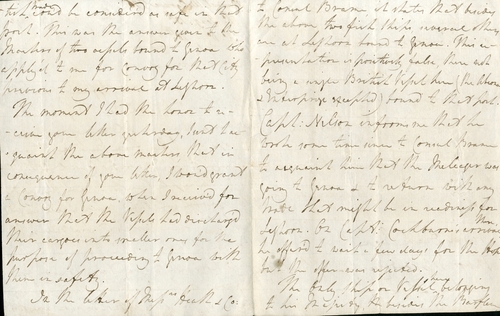 tish, could be considered as safe in that
Port. This was the answer given to the
Masters of two vessels bound to Genoa who
applyed to me for Convoy for that City
previous to my arrival at Leghorn.
The moment I had the honor to re-
ceive your letter yesterday, I sent to ac-
quaint the above masters that in
consequence of your letter, I would grant
a Convoy for Genoa, when I received for
answer that the Vessels had discharged
their cargoes into smaller ones for the
purpose of proceeding to Genoa with
them in safety.
In the letter of Messrs & Co:
to Consul Brame it states that besides
the above two fish ships several others
are at Leghorn bound to Genoa. This re-
presentation is positively false, there not
being a single British Vessel here (the above
& Enterprize excepted) bound to that port.
Capt: Nelson informs me that he
wrote some time since to Consul Brame
to acquaint him that the Meleager was
going to Genoa & to return with any
trade that might be in readiness for
Leghorn. On Capt: Cockburn's
he offered to wait a few days for the
but the offer was rejected.
The only ship or Vessel belonging
to his Majesty besides the